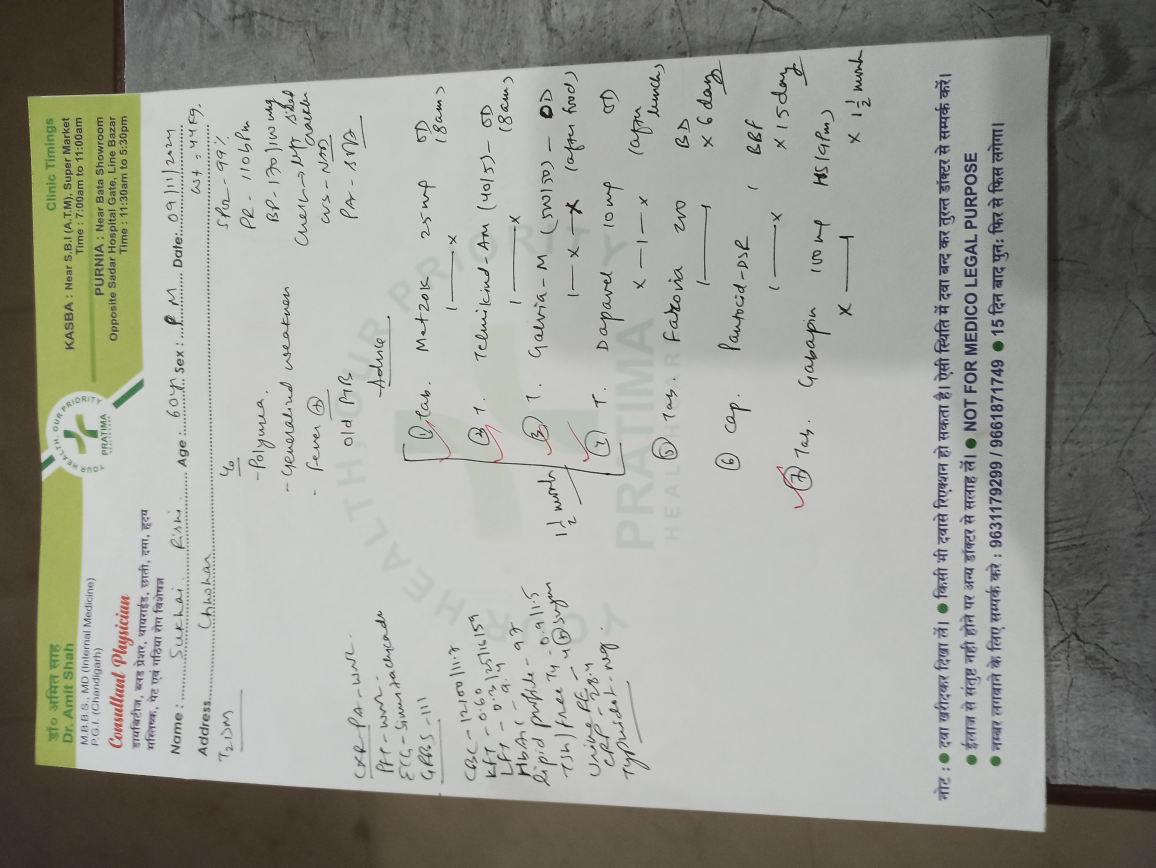 डॉ० अमित साह
Dr. Amit Shah
M.B.B.S., MD (Internal Medicine)
P.G.I. (Chandigarh)
Consultant Physician
डायबिटीज, ब्लड प्रेशर, थायराईड, छाती, दमा, हृदय
मस्तिष्क, पेट एवं गठिया रोग विशेषज्ञ
YOUR HEALTH, OUR PRIORITY
PRATIMA
Clinic Timings
KASBA : Near S.B.I (A.T.M), Super Market
Time : 7:00am to 11:00am
PURNIA : Near Bata Showroom
Opposite Sadar Hospital Gate, Line Bazar
Time : 11:30am to 5:30pm
Name : Sukhai Rishi Age : 60yr Sex : M Date: 09/11/2024
Address Chhohar Wt : 44 kg.
T2DM
c/o
- Polyurea
- Generalised weakness
- Fever (+)
old PTB
SPO2 - 99%
PR - 110bpm
BP - 130/100 mg
CVS - NAD
PA - 
CXR - PA - WNL
PFT - WNL
ECG - Sinus tachycardia
GRBS - 111
CBC - 12100/11.2
KFT - 0.60
LFT - 
HbA1c - 9.7
lipid profile -
TSH / free T4 - 0.9/1.5
Urine RE - 4(+) sugar
CRP - 28.4
Typhidot - neg.
Advice
① Tab. Metzok 25mg OD
1——x (8am)
② T. Telmikind-AM (40/5) - OD
1——x (8am)
③ T. Galvia-M (50/500) - OD
1—x—x (after food)
④ T. Daparel 10mg OD
x—1—x (after lunch)
1 1/2 month
⑤ Tab. Farovia 200 BD
1——1 x 6 day
⑥ Cap. Pantocid-DSR 1 BBF
1——x x 15 day
⑦ Tab. Gabapin 100mg HS (9pm)
x——1 x 1 1/2 month
YOUR HEALTH OUR PRIORITY
PRATIMA
नोट : ● दवा खरीदकर दिखा लें। ● किसी भी दवासे रिएक्शन हो सकता है। ऐसी स्थिति में दवा बन्द कर तुरन्त डॉक्टर से सम्पर्क करें।
● ईलाज से संतुष्ट नही होने पर अन्य डॉक्टर से सलाह लें। ● NOT FOR MEDICO LEGAL PURPOSE
● नम्बर लगवाने के लिए सम्पर्क करे : 9631179299 / 9661871749 ● 15 दिन बाद पुन: फिर से फिस लगेगा।